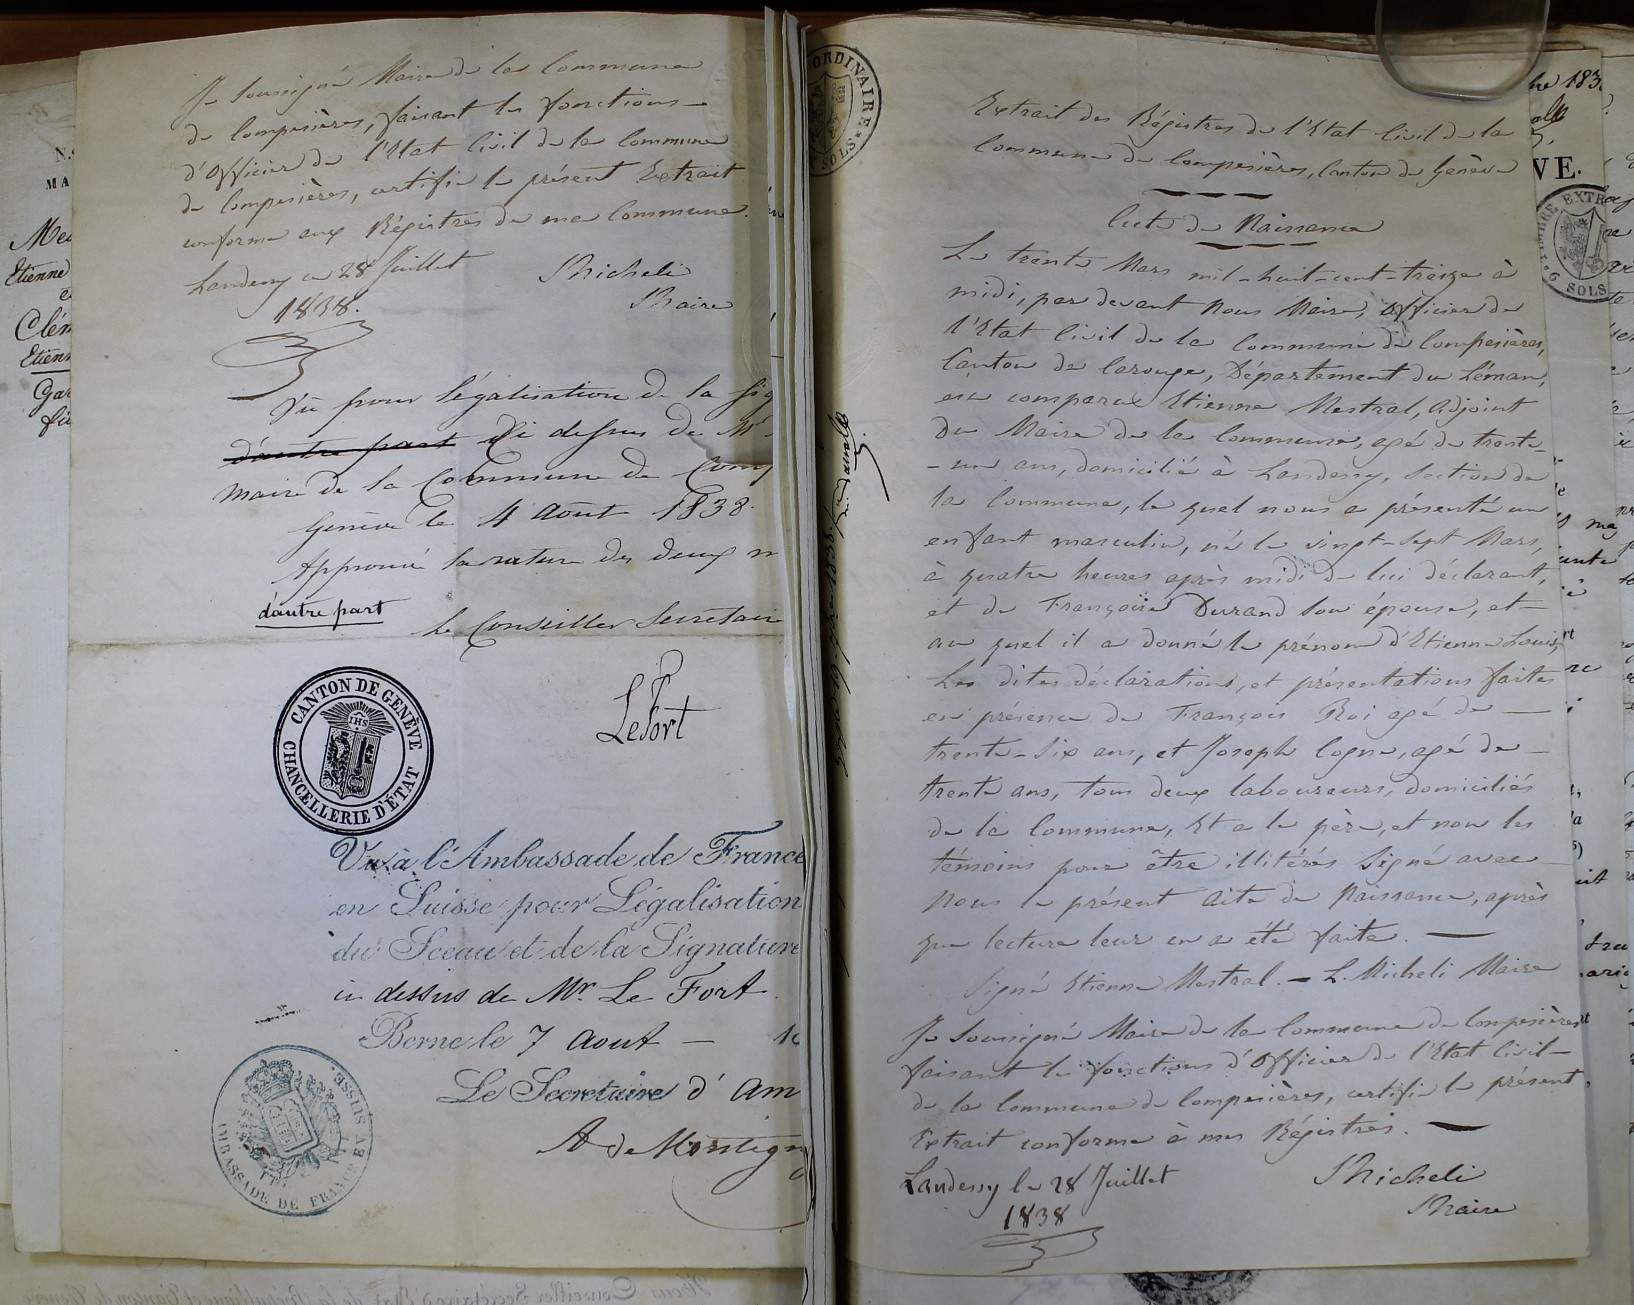 Je Soussigné Maire de la Commune
de Compesières, faisant les fonctions
d'Officier de l'Etat Civil de la Commune
de Compesières, certifie le présent Extrait
conforme aux Régistres de ma Commune.
Landecy ce 28 Juillet
1838.
Micheli
Maire
Vu pour légalisation de la sig
d'autre part Ci dessus de Mr
Maire de la Commune de Comp
Genève le 4 Août 1838.
Approuvé la rature des deux m
d'autre part
Le Conseiller Secretaire
LeFort
CANTON DE GENÈVE
CHANCELLERIE D'ÉTAT
IHS
Vu à l'Ambassade de France
en Suisse pour Légalisation
du Sceau et de la Signature
ci dessus de Mr. Le Fort
Berne le 7 Aout — 18
Le Secretaire d'am
A de Montign
AMBASSADE DE FRANCE EN SUISSE
N.
MA
Mes
Etienne
e
Clém
Etienn
Gar
fil
ORDINAIRE
SOLS
Extrait des Régistres de l'Etat Civil de la
Commune de Compesières, Canton de Genève
Acte de Naissance
Le trente Mars mil-huit-cent-treize à
midi, par devant Nous Maire, Officier de
l'Etat Civil de la Commune de Compesières,
Canton de Carouge, Département du Léman,
est comparu Etienne Mestral, Adjoint
du Maire de la Commune, agé de trente-
-un ans, domicilié à Landecy, Section de
la Commune, le quel nous a présenté un
enfant masculin, né le vingt-sept Mars,
à quatre heures après midi de lui déclarant,
et de Françoise Durand son épouse, et
au quel il a donné le prénom d'Etienne Louis,
Les dites déclarations, et présentations faites
en présence de François Roi agé de —
trente-six ans, et Joseph Cogne, agé de —
trente ans, tous deux laboureurs, domiciliés
de la Commune, Et a le père, et non les
témoins pour être illitérés Signé avec
Nous le présent Acte de Naissance, après
que lecture leur en a été faite. —
Signé Etienne Mestral. — L. Micheli Maire
Je Soussigné Maire de la Commune de Compesières
faisant les fonctions d'Officier de l'Etat Civil
de la Commune de Compesières, certifie le présent
Extrait conforme à mes Régistres. —
Landecy le 28 Juillet
1838
Micheli
Maire
183
VE.
TIMBRE EXTR
6 SOLS